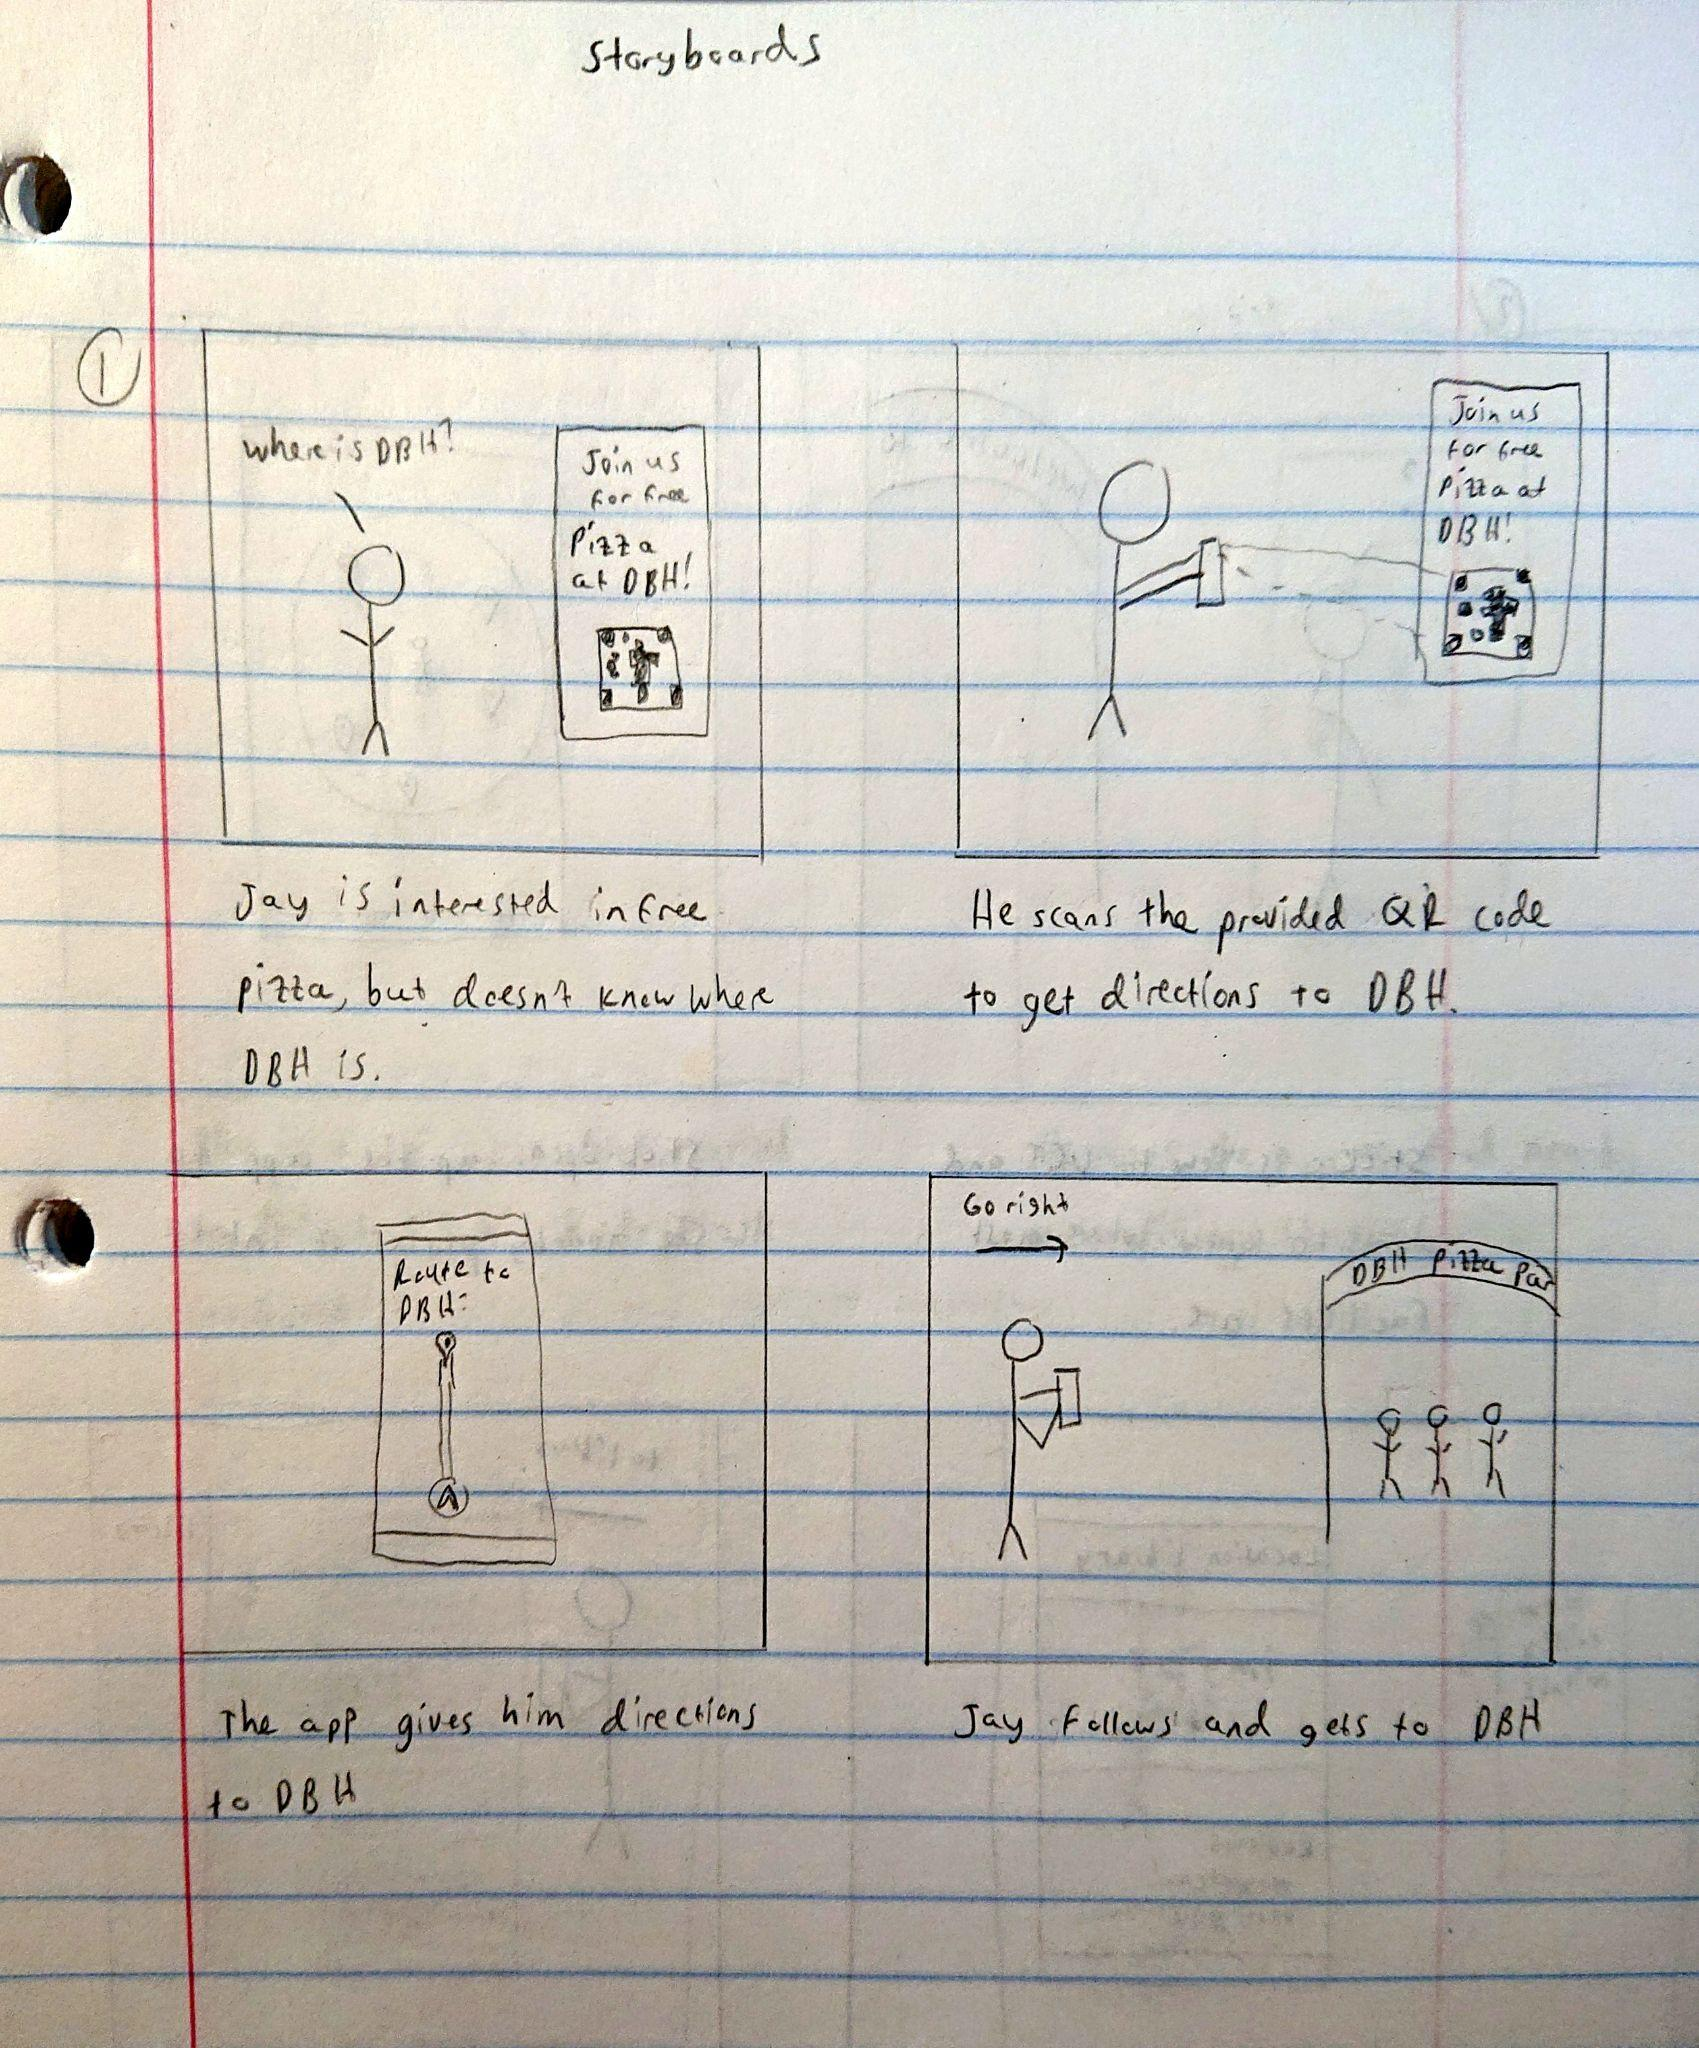 Storyboards
1
where is DBH?
Join us
for free
Pizza
at DBH!
Jay is interested in free
pizza, but doesn't know where
DBH is.
Join us
for free
Pizza at
DBH!
He scans the provided QR code
to get directions to DBH.
Route to
DBH:
The app gives him directions
to DBH
Go right
DBH Pizza Par
Jay follows and gets to DBH